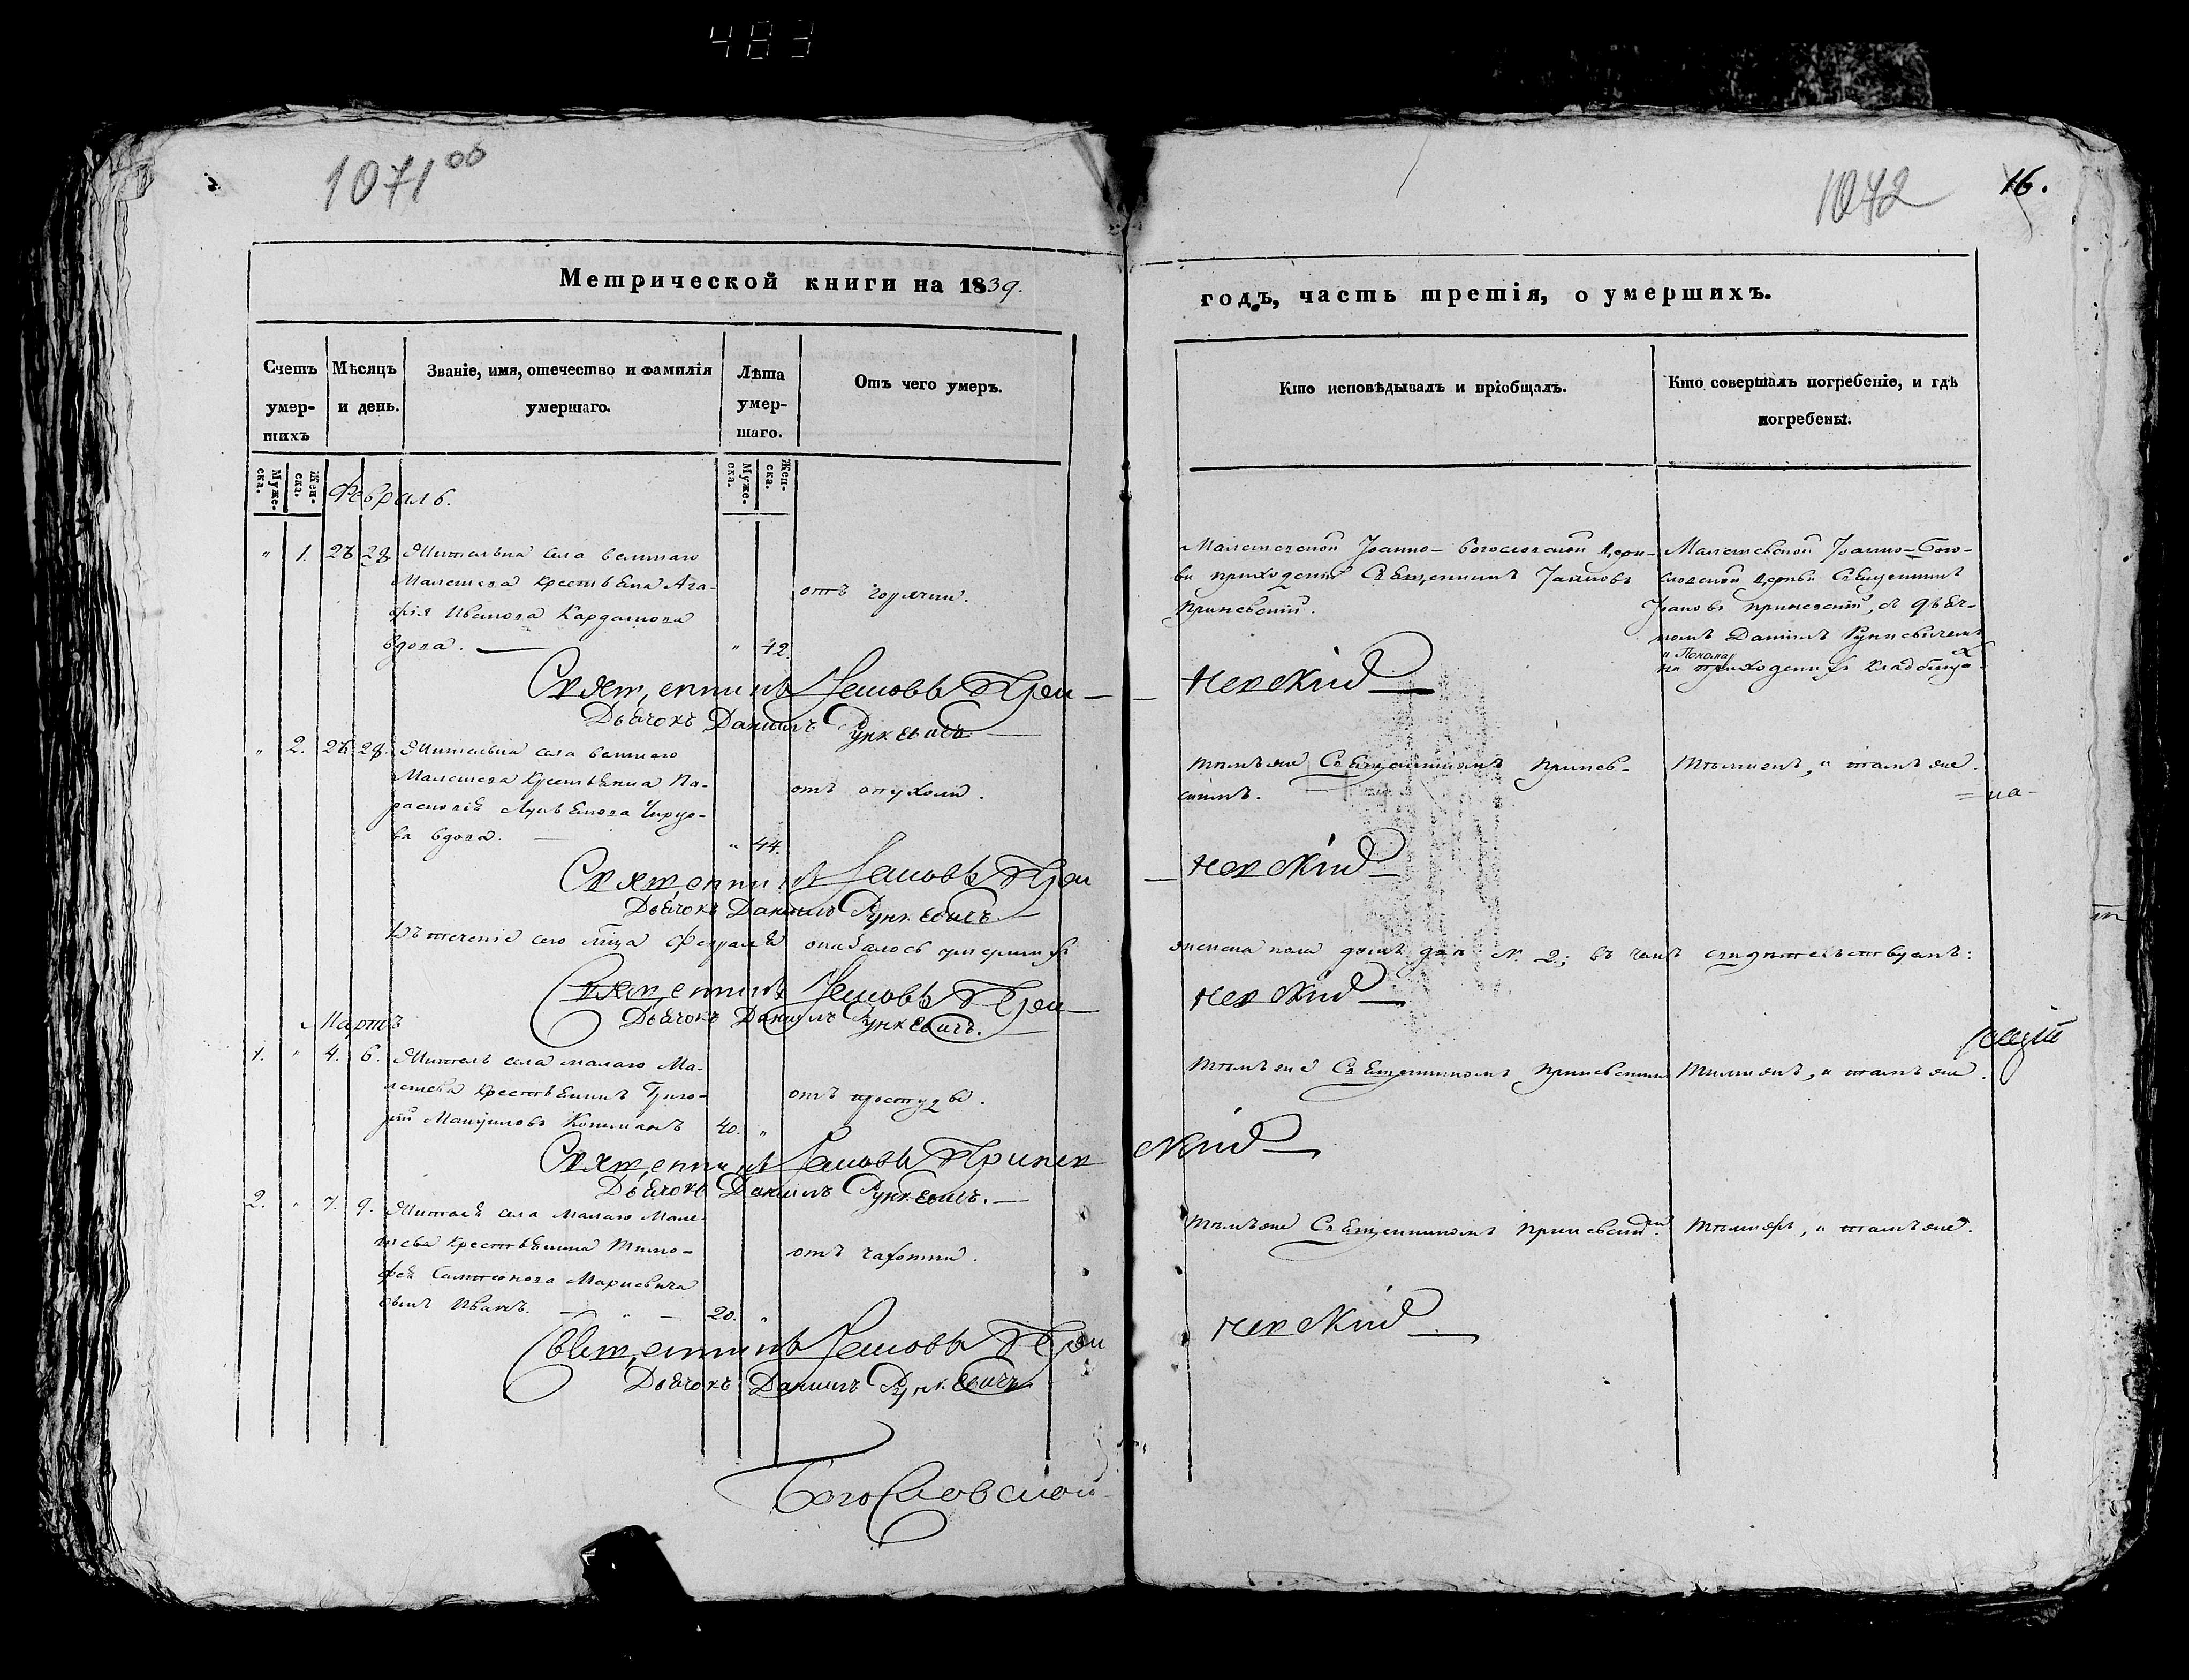 483
1071 об
1072
16.
Метрической книги на 1839.
годъ, часть третія, о умершихъ.
Счетъ умер-шихъ
Мѣсяцъ и день.
Званіе, имя, отечество и фамилія умершаго.
Лѣта умер-шаго.
Отъ чего умеръ.
Кто исповѣдывалъ и пріобщалъ.
Кто совершалъ погребеніе, и гдѣ погребены.
Муже-ска.
Жен-ска.
Муже-ска.
Жен-ска.
Февраль.
" 1. 26 28
Жительна села великаго
Малешева крестьянка Ага-
фія Иванова
вдова. — " 42.
отъ горячки.
Малешевской Іоанно-Богословской церк-
ви приходскій Священникъ Іаковъ
Приневскій.
Малешевской Іоанно-Бого-
словской церкви Священникъ
Іаковъ Приневскій, съ дьяч-
комъ Даніилъ Рункевичемъ
на приходскихъ кладбища
Священникъ Іаковъ При-
— невскій —
Дьячокъ Даніилъ Рункевичъ
" 2. 26 28.
Жительна села великаго
Малешева крестьянка Па-
раскевія
ва вдова. — " 44.
отъ опухоли.
тѣмъ же Священникомъ Принев-
скимъ.
тѣмиже, и тамъ же.
=на-
Священникъ Іаковъ При
— невскій —
Дьячокъ Даніилъ Рункевичъ.
Въ теченіе сего мѣца Февраля оказалось умершихъ
женска пола душъ двѣ №. 2; въ чемъ свидѣтельствуемъ:
Священникъ Іаковъ При-
невскій —
Дьячокъ Даніилъ Рункевичъ.
Мартъ
1. " 4. 6.
Житель села малаго Ма-
лешева крестьянинъ Григо-
рій Мануиловъ 40. "
отъ простуды.
тѣмъ же Священникомъ Приневскимъ
тѣмиже, и тамъ же.
Священникъ Іаковъ Приневскій —
Дьячокъ Даніилъ Рункевичъ. —
2. " 7. 9.
Жителя села малаго Мале-
шева крестьянина Тимо-
фея Самсонова Марцевича
сынъ Иванъ. — " — 20. "
отъ чахотки.
тѣмъ же Священникомъ Приневскимъ.
тѣмиже, и тамъ же.
Священникъ Іаковъ При
невскій —
Дьячокъ Даніилъ Рункевичъ
Богословской